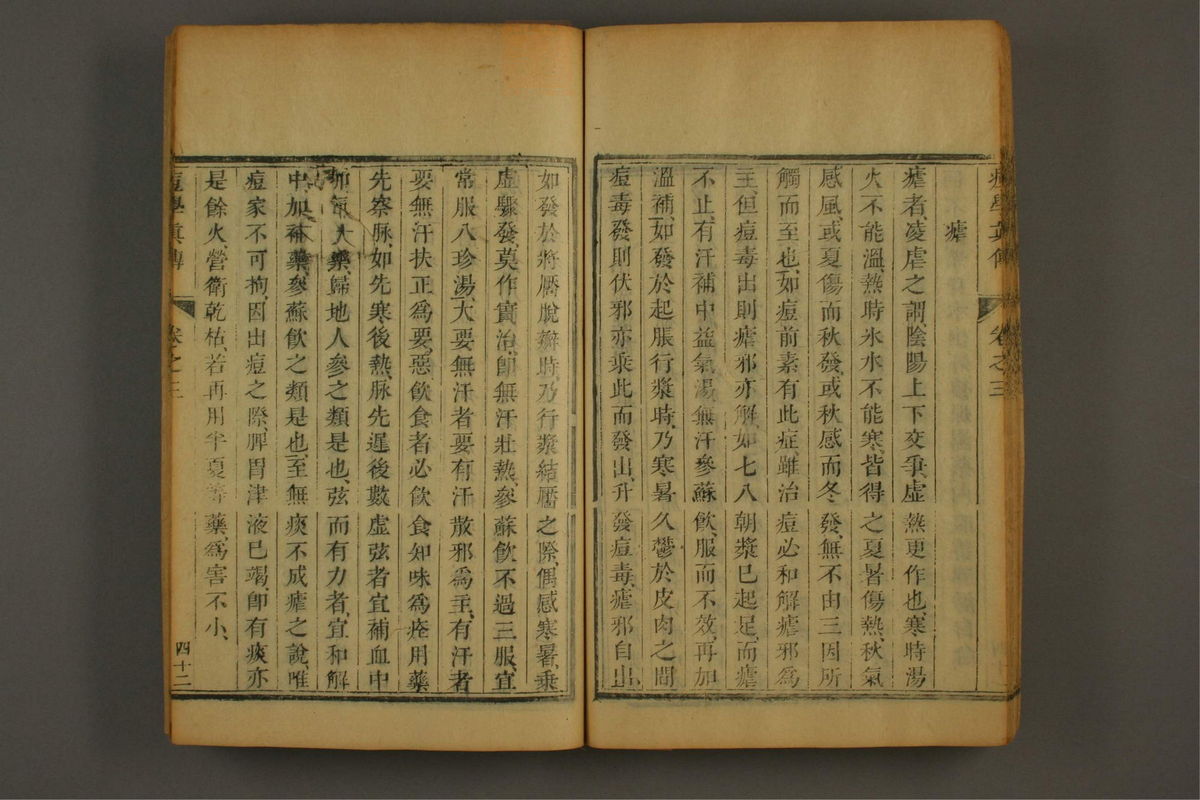 痘學眞傳 卷之三
瘧
瘧者、凌虐之謂、陰陽上下交爭、虛熱更作也、寒時湯
火不能溫、熱時氷水不能寒、皆得之夏暑傷熱、秋氣
感風、或夏傷而秋發、或秋感而冬發、無不由三因所
觸而至也、如痘前素有此症、雖治痘必和解瘧邪爲
主、但痘毒出則瘧邪亦解、如七八朝漿已起足、而瘧
不止、有汗補中益氣湯、無汗參蘇飮、服而不效、再加
溫補、如發於起脹行漿時、乃寒暑久鬱於皮肉之間
痘毒發則伏邪亦乘此而發出、升發痘毒、瘧邪自出、
如發於將靨脫瓣時、乃行漿結靨之際、偶感寒暑、乘
虛驟發、莫作實治、卽無汗壯熱、參蘇飮不過三服、宜
常服八珍湯、大要無汗者要有汗散邪爲主、有汗者
要無汗扶正爲要、惡飮食者必飮食知味爲痊、用藥
先察脉、如先寒後熱、脉先遲後數虛弦者宜補血中
加氣藥、歸地人參之類是也、弦而有力者、宜和解
中加補藥、參蘇飮之類是也、至無痰不成瘧之說、唯
痘家不可拘、因出痘之際、脾胃津液已竭、卽有痰亦
是餘火、營衛乾枯、若再用半夏等藥、爲害不小、
痘學眞傳 卷之三 四十二